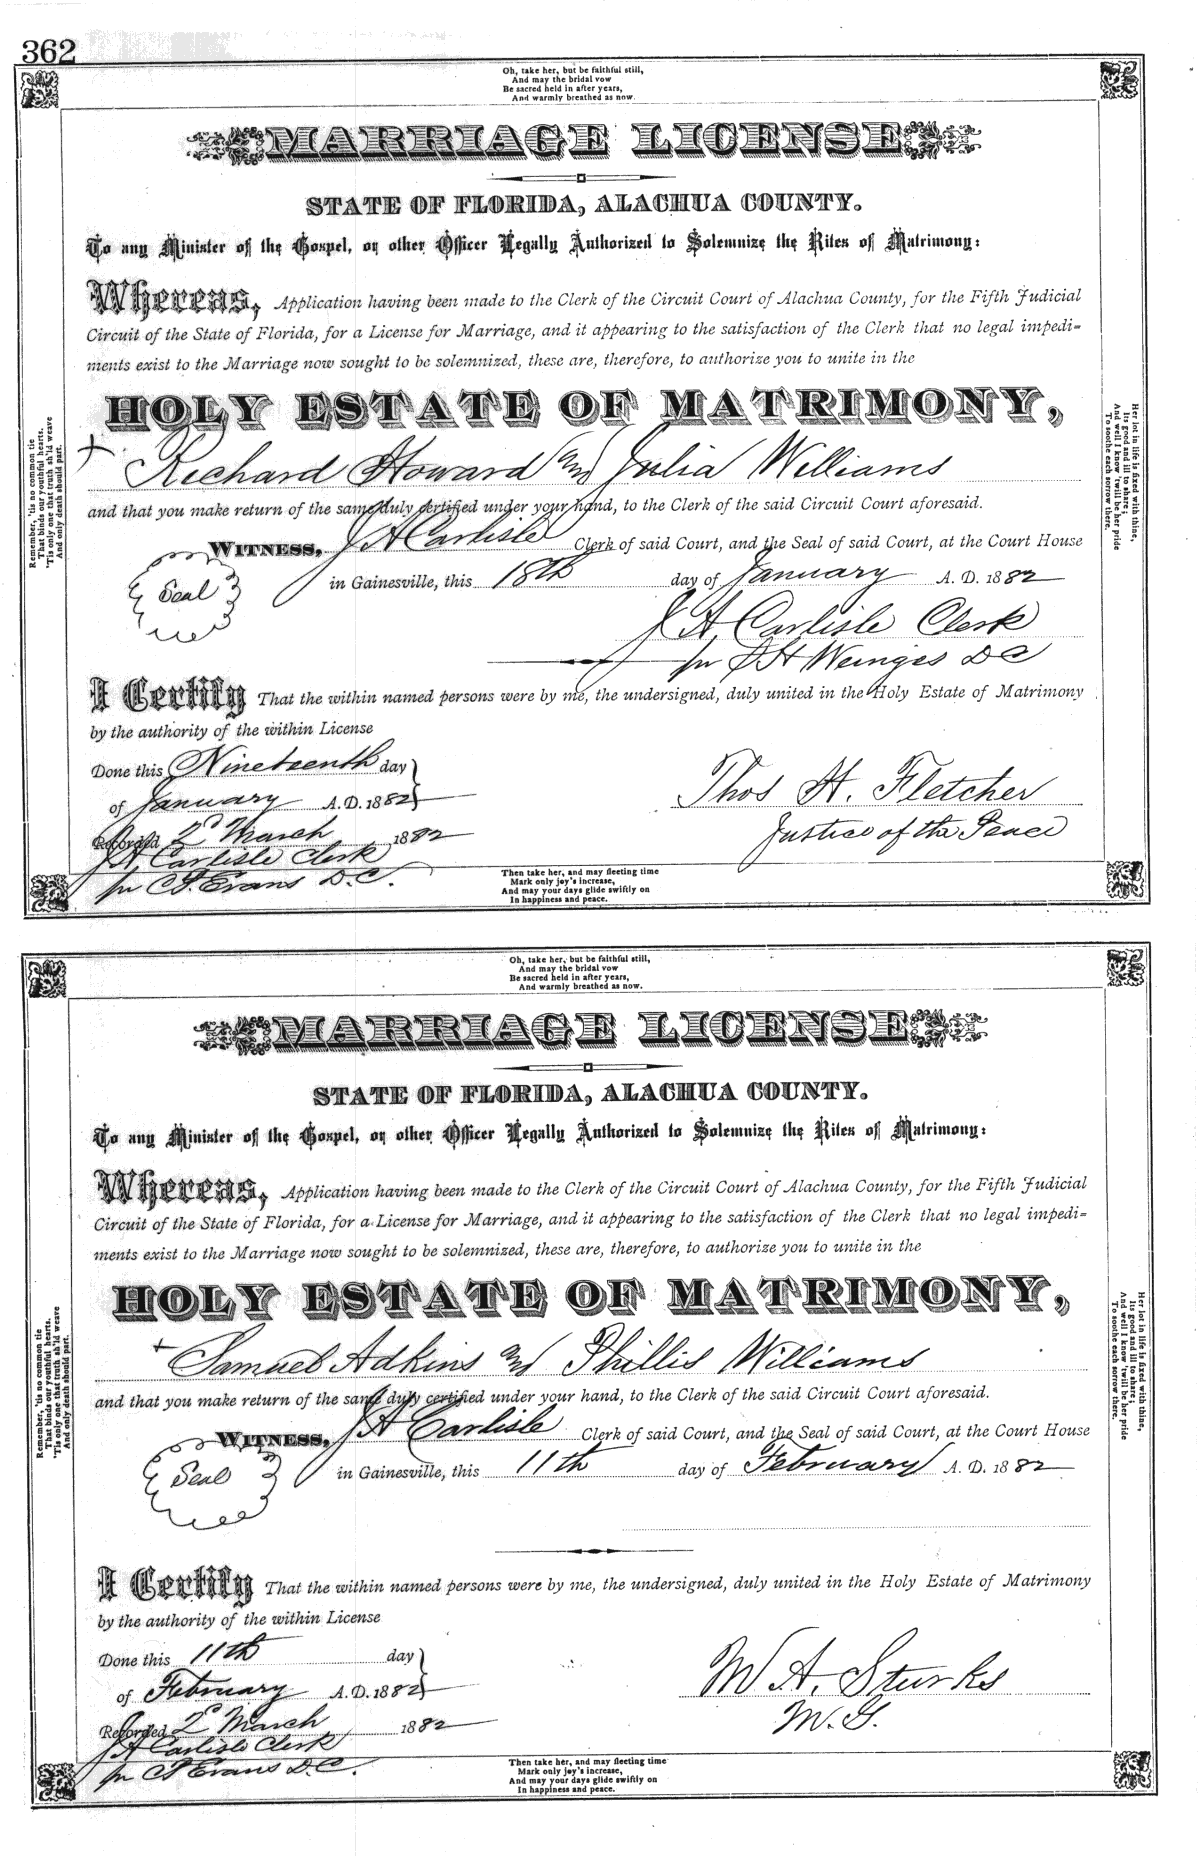 362
Oh, take her, but be faithful still,
And may the bridal vow
Be sacred held in after years,
And warmly breathed as now.
MARRIAGE LICENSE
STATE OF FLORIDA, ALACHUA COUNTY.
To any Minister of the Gospel, or other Officer Legally Authorized to Solemnize the Rites of Matrimony:
Whereas, Application having been made to the Clerk of the Circuit Court of Alachua County, for the Fifth Judicial
Circuit of the State of Florida, for a License for Marriage, and it appearing to the satisfaction of the Clerk that no legal impedi-
ments exist to the Marriage now sought to be solemnized, these are, therefore, to authorize you to unite in the
HOLY ESTATE OF MATRIMONY,
Richard Howard and Julia Williams
and that you make return of the same duly certified under your hand, to the Clerk of the said Circuit Court aforesaid.
WITNESS, J A Carlisle Clerk of said Court, and the Seal of said Court, at the Court House
Seal
in Gainesville, this 18th day of January A. D. 1882
J A Carlisle Clerk
pr S H Weinges D C
I Certify That the within named persons were by me, the undersigned, duly united in the Holy Estate of Matrimony
by the authority of the within License
Done this Nineteenth day
of January A. D. 1882
Thos H. Fletcher
Justice of the Peace
Recorded 2d March 1882
J A Carlisle Clerk
pr C J. Evans D. C.
Remember, 'tis no common tie
That binds our youthful hearts,
'Tis only one that truth sh'ld weave
And only death should part.
Her lot in life is fixed with thine,
Its good and ill to share;
And well I know 'twill be her pride
To soothe each sorrow there.
Then take her, and may fleeting time
Mark only joy's increase,
And may your days glide swiftly on
In happiness and peace.
Oh, take her, but be faithful still,
And may the bridal vow
Be sacred held in after years,
And warmly breathed as now.
MARRIAGE LICENSE
STATE OF FLORIDA, ALACHUA COUNTY.
To any Minister of the Gospel, or other Officer Legally Authorized to Solemnize the Rites of Matrimony:
Whereas, Application having been made to the Clerk of the Circuit Court of Alachua County, for the Fifth Judicial
Circuit of the State of Florida, for a License for Marriage, and it appearing to the satisfaction of the Clerk that no legal impedi-
ments exist to the Marriage now sought to be solemnized, these are, therefore, to authorize you to unite in the
HOLY ESTATE OF MATRIMONY,
Samuel Adkins and Phillis Williams
and that you make return of the same duly certified under your hand, to the Clerk of the said Circuit Court aforesaid.
WITNESS, J A Carlisle Clerk of said Court, and the Seal of said Court, at the Court House
Seal
in Gainesville, this 11th day of February A. D. 1882
I Certify That the within named persons were by me, the undersigned, duly united in the Holy Estate of Matrimony
by the authority of the within License
Done this 11th day
of February A. D. 1882
W A. Sturks
M. G.
Recorded 2d March 1882
J A Carlisle Clerk
pr C J Evans D. C.
Remember, 'tis no common tie
That binds our youthful hearts,
'Tis only one that truth sh'ld weave
And only death should part.
Her lot in life is fixed with thine,
Its good and ill to share;
And well I know 'twill be her pride
To soothe each sorrow there.
Then take her, and may fleeting time
Mark only joy's increase,
And may your days glide swiftly on
In happiness and peace.